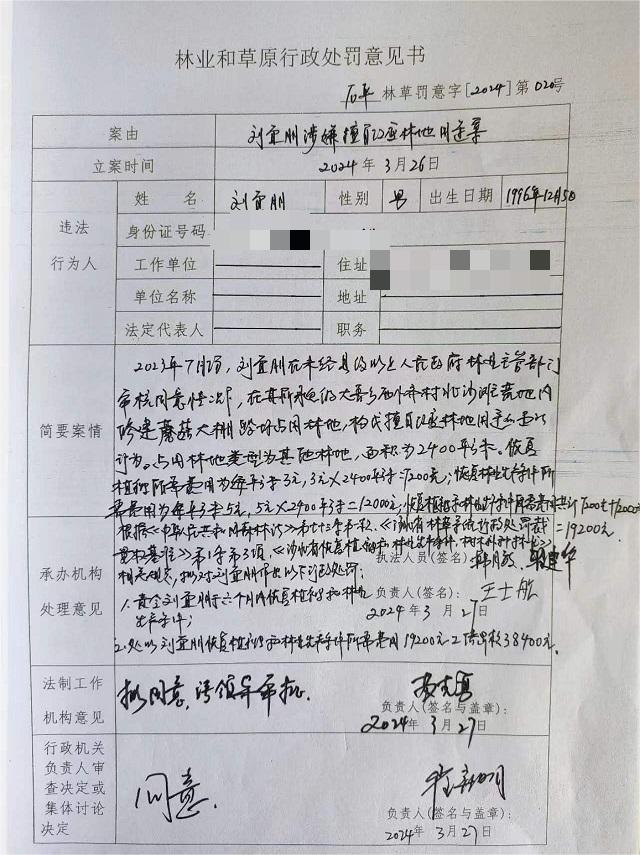 林业和草原行政处罚意见书
石平 林草罚意字[2024]第020号
案由 刘宜朋涉嫌擅自改变林地用途案
立案时间 2024年3月26日
违法行为人
姓名 刘宜朋 性别 男 出生日期 1996年12月5日
身份证号码
工作单位 住址
单位名称 地址
法定代表人 职务
简要案情
2023年7月份,刘宜朋在未经县级以上人民政府林业主管部门
审核同意情况下,在其所承包的大吾乡西外齐村北沙河荒地内
修建蘑菇大棚路坏占用林地,构成擅自改变林地用途的违法
行为。占用林地类型为其他林地,面积为2400平方米。恢复
植被所需费用为每平方米3元,3元×2400平方米=7200元;恢复林业生产条件所
需费用为每平方米5元,5元×2400平方米=12000元;恢复植被和林业生产条件所需费用共计7200元+12000元
=19200元。
承办机构处理意见
根据《中华人民共和国森林法》第七十三条第一款、《河北省林业和草原行政处罚裁
量权基准》第1条第3项、《河北省恢复植被和林业生产条件、树木补种标准》
相关规定,拟对刘宜朋作出以下行政处罚:
1.责令刘宜朋于六个月内恢复植被和林业
生产条件;
2.处以刘宜朋恢复植被和林业生产条件所需费用19200元2倍罚款38400元。
执法人员(签名):
负责人(签名):
2024年3月27日
法制工作机构意见
拟同意,请领导审批.
负责人(签名与盖章):
2024年3月27日
行政机关负责人审查决定或集体讨论决定
同意.
负责人(签名与盖章):
2024年3月27日